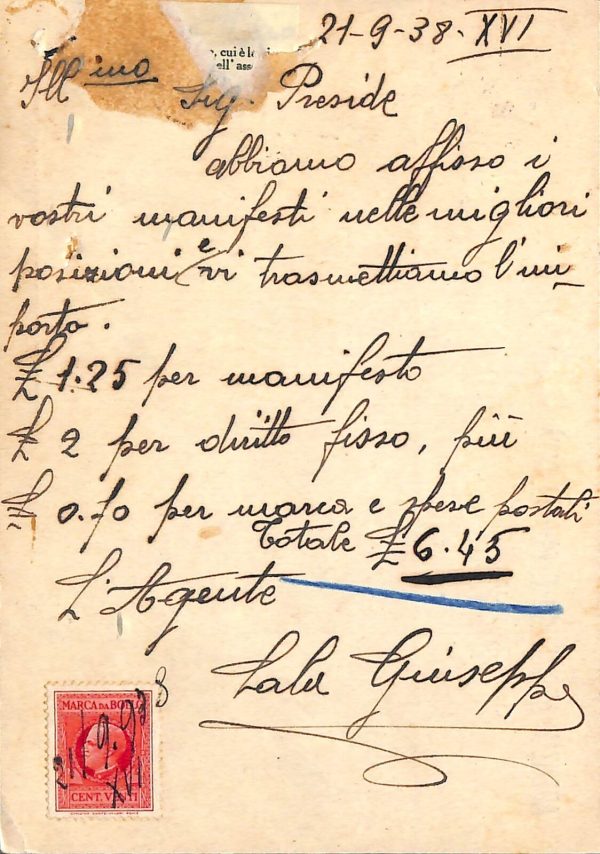 21-9-38-XVI
, cui è la
ell'ass
Ill.mo Sig. Preside
abbiamo affisso i
vostri manifesti nelle migliori
posizioni e vi trasmettiamo l'im-
porto.
£ 1.25 per manifesto
£ 2 per diritto fisso, più
£ 0.70 per marca e spese postali
Totale £ 6.45
L'Agente
Giuseppe
MARCA DA BOLLO
21/9.938
XVI
CENT. VENTI